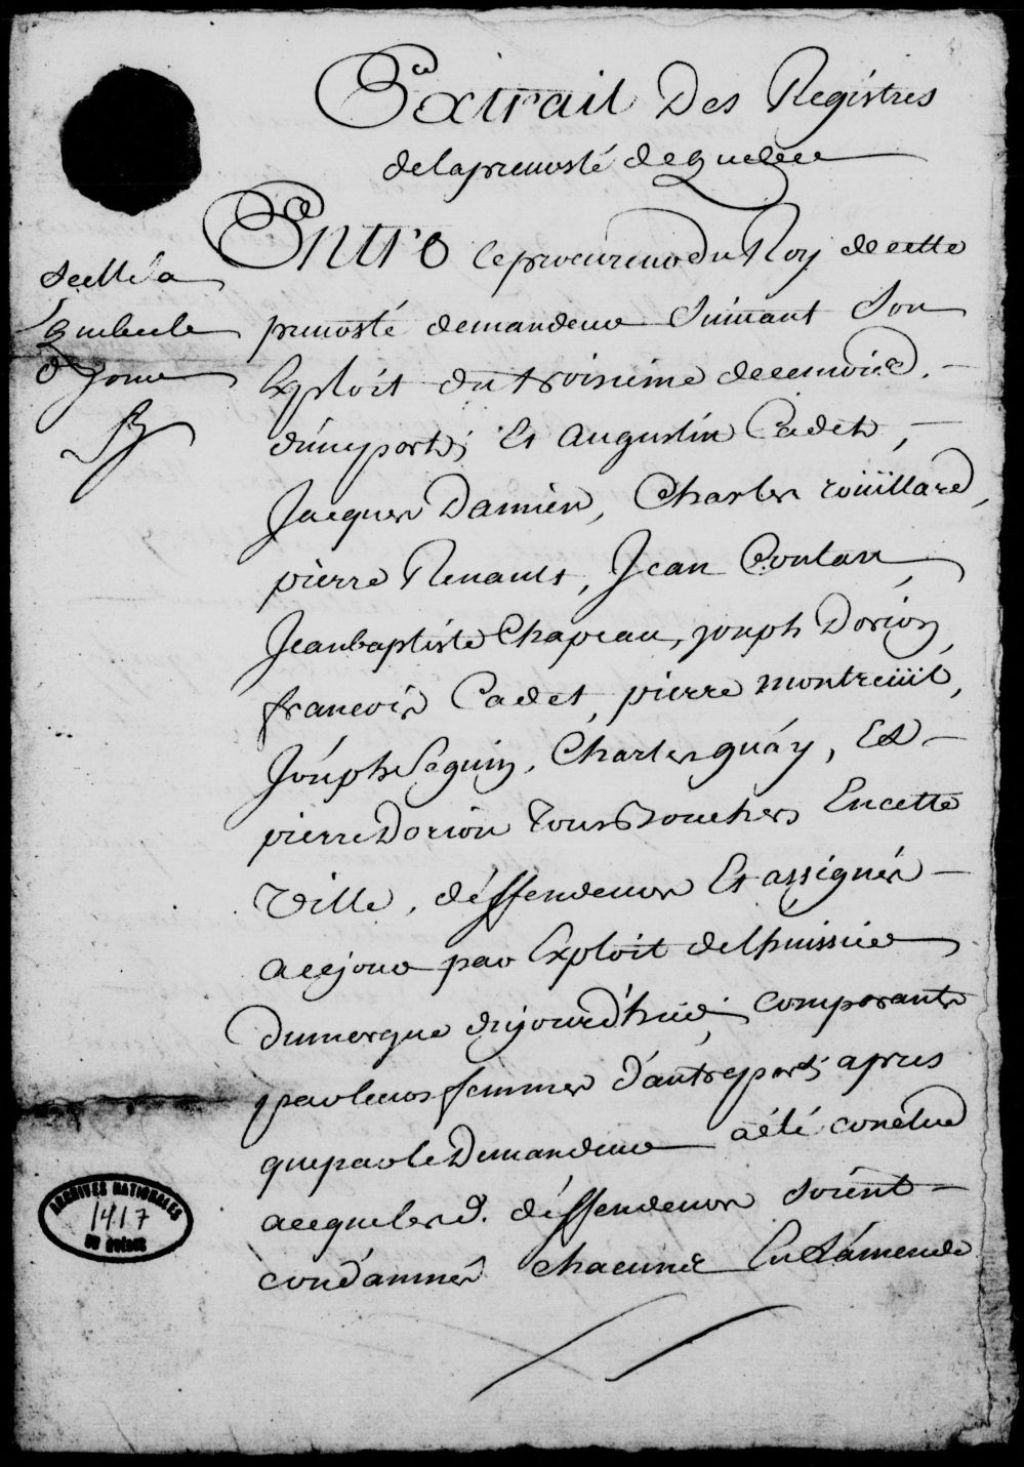 Extrait Des Registres
de la prevosté de quebec
Entre le procureur du Roy de cette
prevosté demandeur Suivant Son
Exploit du troisieme de ce mois
d'une part; Et Augustin Cadet,
Jacques Damien, Charles roüillard,
pierre Renault, Jean Coutan,
Jean baptiste Chapeau, joseph Dorion,
francois Cadet, pierre montreüil,
Joseph Seguin, Charles guáy, Et
pierre Dorion Tous Bouchers En cette
Ville, déffendeurs Et assignés
a ce jour par Exploit de l'huissier
dumergue dujourd'huÿ comparants
par leurs femmes d'autre part; apres
que par le Demandeur a été conclud
a ce que les d. déffendeurs Soient
condamnés chacun En L'ámende
Scellé a
quebec le
d. jour
ARCHIVES NATIONALES
1417
DU QUÉBEC